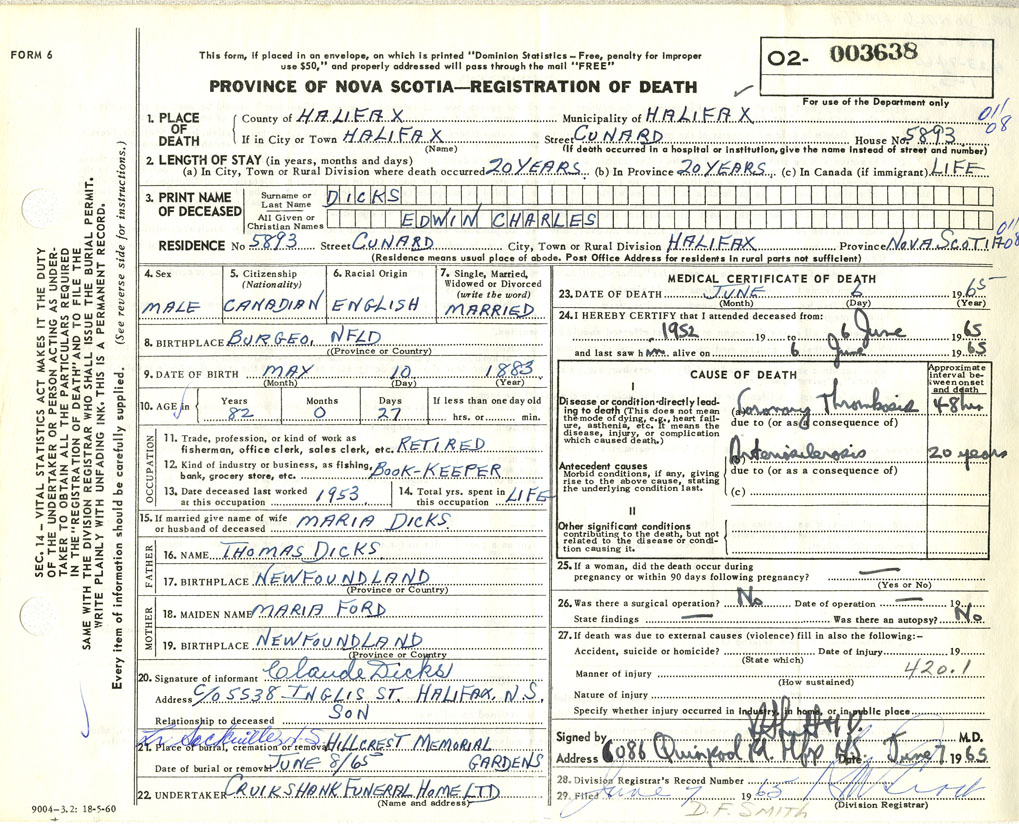 FORM 6
This form, if placed in an envelope, on which is printed "Dominion Statistics – Free, penalty for improper
use $50," and properly addressed will pass through the mail "FREE"
O2- 003638
For use of the Department only
PROVINCE OF NOVA SCOTIA—REGISTRATION OF DEATH
SEC. 14 – VITAL STATISTICS ACT MAKES IT THE DUTY
OF THE UNDERTAKER OR PERSON ACTING AS UNDER-
TAKER TO OBTAIN ALL THE PARTICULARS REQUIRED
IN THE "REGISTRATION OF DEATH" AND TO FILE THE
SAME WITH THE DIVISION REGISTRAR WHO SHALL ISSUE THE BURIAL PERMIT.
WRITE PLAINLY WITH UNFADING INK. THIS IS A PERMANENT RECORD.
Every item of information should be carefully supplied. (See reverse side for instructions.)
1. PLACE OF DEATH
County of HALIFAX Municipality of HALIFAX
011/08
If in City or Town HALIFAX Street CUNARD House No. 5893
(Name) (If death occurred in a hospital or institution, give the name instead of street and number)
2. LENGTH OF STAY (in years, months and days)
(a) In City, Town or Rural Division where death occurred 20 YEARS (b) In Province 20 YEARS (c) In Canada (if immigrant) LIFE
3. PRINT NAME OF DECEASED
Surname or Last Name DICKS
All Given or Christian Names EDWIN CHARLES
RESIDENCE No 5893 Street CUNARD City, Town or Rural Division HALIFAX Province NOVA SCOTIA 011 08
(Residence means usual place of abode. Post Office Address for residents in rural parts not sufficient)
4. Sex
MALE
5. Citizenship (Nationality)
CANADIAN
6. Racial Origin
ENGLISH
7. Single, Married, Widowed or Divorced (write the word)
MARRIED
8. BIRTHPLACE BURGEO, NFLD
(Province or Country)
9. DATE OF BIRTH MAY 10 1883
(Month) (Day) (Year)
10. AGE in Years Months Days If less than one day old
82 0 27 hrs. or min.
OCCUPATION
11. Trade, profession, or kind of work as
fisherman, office clerk, sales clerk, etc. RETIRED
12. Kind of industry or business, as fishing,
bank, grocery store, etc. BOOK-KEEPER
13. Date deceased last worked at this occupation 1953
14. Total yrs. spent in this occupation LIFE
15. If married give name of wife
or husband of deceased MARIA DICKS
FATHER
16. NAME THOMAS DICKS
17. BIRTHPLACE NEWFOUNDLAND
(Province or Country)
MOTHER
18. MAIDEN NAME MARIA FORD
19. BIRTHPLACE NEWFOUNDLAND
(Province or Country)
20. Signature of informant Claude Dicks
Address C/O 5538 - INGLIS ST. HALIFAX, N.S.
Relationship to deceased SON
Sackville N S
21. Place of burial, cremation or removal HILLCREST MEMORIAL
Date of burial or removal JUNE 8/65 GARDENS
22. UNDERTAKER CRUIKSHANK FUNERAL HOME LTD
(Name and address)
9004–3.2: 18-5-60
MEDICAL CERTIFICATE OF DEATH
23. DATE OF DEATH JUNE 6 1965
(Month) (Day) (Year)
24. I HEREBY CERTIFY that I attended deceased from:
1952 19 to 6 June 1965
and last saw him alive on 6 June 1965
CAUSE OF DEATH
Approximate interval between onset and death
I
Disease or condition directly leading to death (This does not mean the mode of dying, e.g., heart failure, asthenia, etc. It means the disease, injury, or complication which caused death.)
(a) Coronary Thrombosis 48 hrs
due to (or as a consequence of)
Arteriosclerosis 20 years
Antecedent causes
Morbid conditions, if any, giving rise to the above cause, stating the underlying condition last.
due to (or as a consequence of)
(c)
II
Other significant conditions
contributing to the death, but not related to the disease or condition causing it.
25. If a woman, did the death occur during
pregnancy or within 90 days following pregnancy? —
(Yes or No)
26. Was there a surgical operation? No Date of operation — 19
State findings — Was there an autopsy? No
27. If death was due to external causes (violence) fill in also the following:–
Accident, suicide or homicide? Date of injury 19
(State which)
420.1
Manner of injury
(How sustained)
Nature of injury
Specify whether injury occurred in industry, in home, or in public place
Signed by M.D.
Address 6086 Quinpool Rd. Date June 7 1965
28. Division Registrar's Record Number
29. Filed June 7 1965
(Division Registrar)
D.F. SMITH